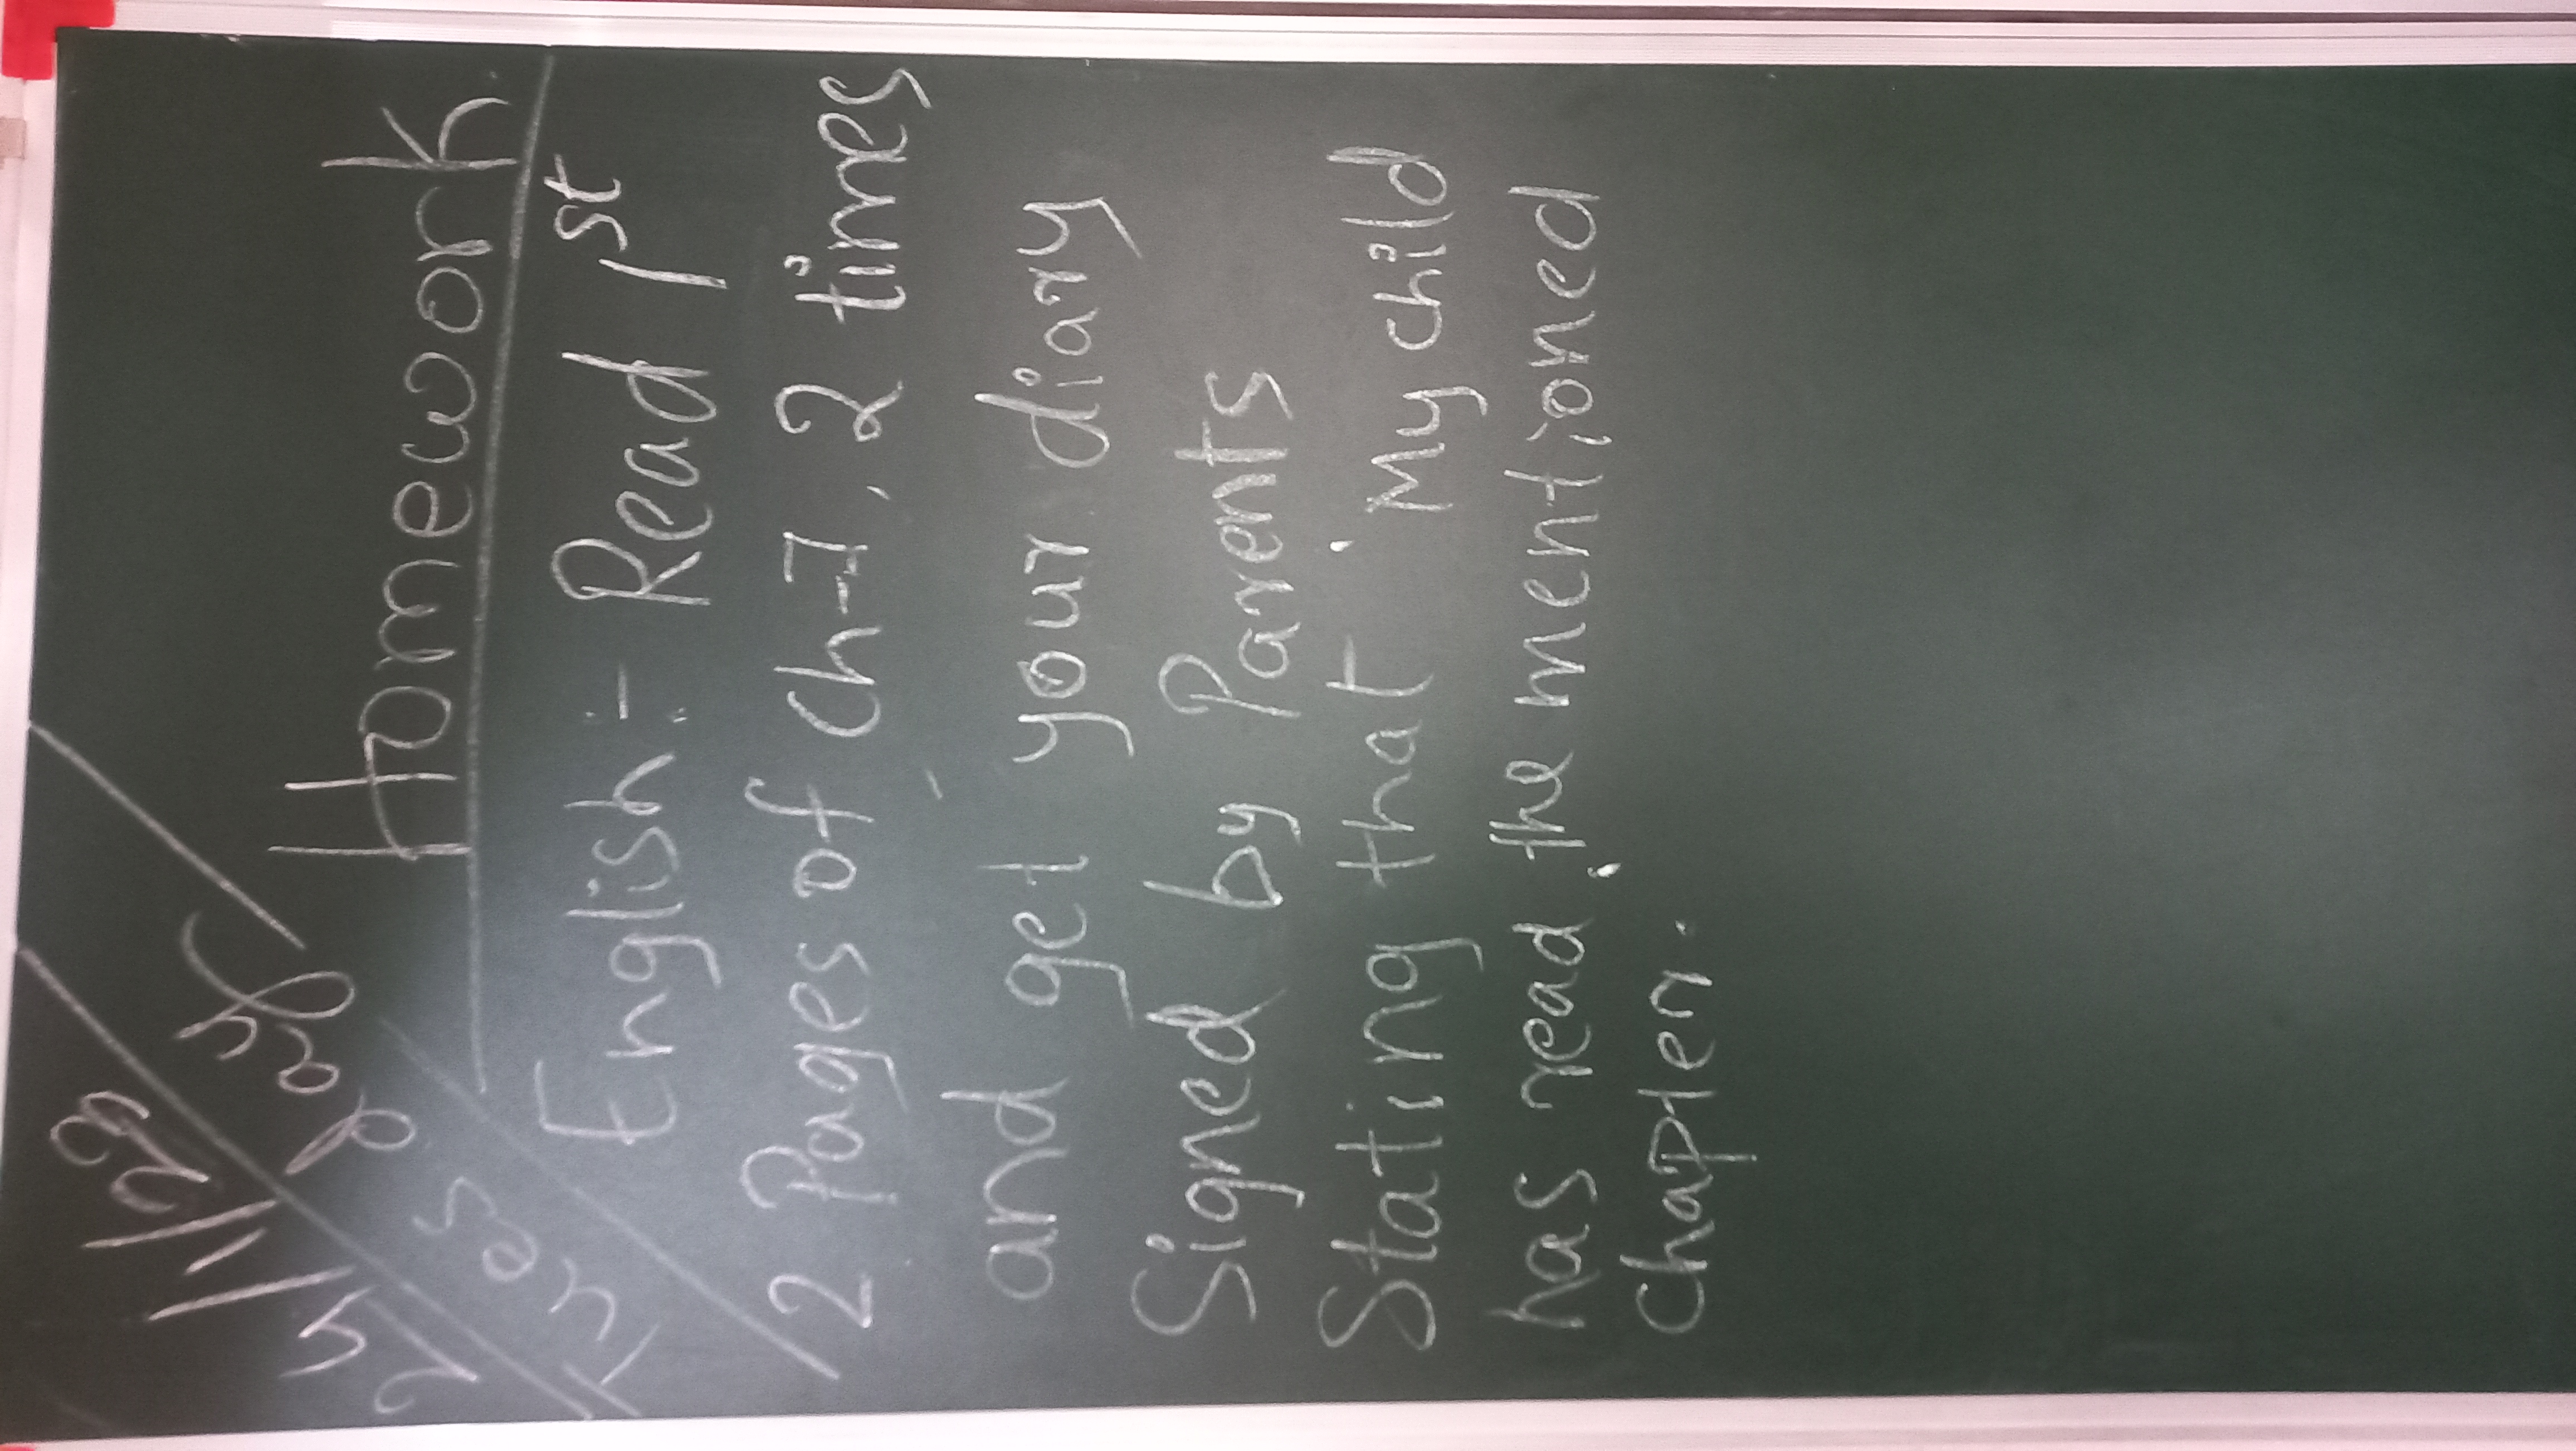 24/11/23
Tuesday
Homework.
English:- Read 1st
2 Pages of Ch-7, 2 times
and get your diary
Signed by Parents
Stating that 'My child
has read the mentioned
chapter.